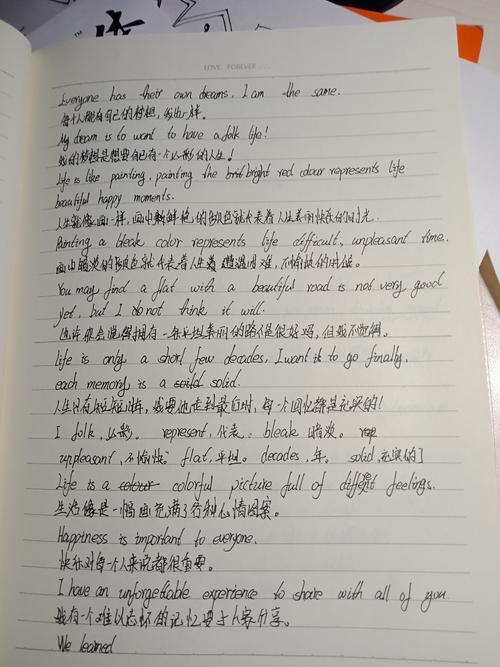 LOVE FOREVER...
Everyone has their own dreams, I am the same.
每个人都有自己的梦想，我也一样。
My dream is to want to have a folk life!
我的梦想是想要自己有一个必彩的人生！
Life is like painting, painting the bright red colour represents life
beautiful happy moments.
人生就像画一样，画中鲜艳的颜色就代表着人生美丽快乐的时光.
Painting a bleak color represents life difficult, unpleasant time.
画中暗淡的颜色就代表着人生遭遇困难，不愉快的时候。
You may find a flat with a beautiful road is not very good
yet, but I do not think it will.
也许你会觉得拥有一条平坦美丽的路不是很好吗，但我不觉得。
Life is only a short few decades, I want to go finally,
each memory is a solid.
人生只有短短几年，我要他走到最后时，每一个回忆都是充实的！
I folk, 必彩. represent, 代表. bleak 暗淡。
unpleasant, 不愉快. flat, 平坦. decades, 年. solid, 充实的]
Life is a colour colorful picture full of different feelings.
生活像是一幅画充满了各种心情图案。
Happiness is important to everyone.
快乐对每个人来说都很重要。
I have an unforgettable experience to share with all of you.
我有一个难以忘怀的记忆要于大家分享。
We learned